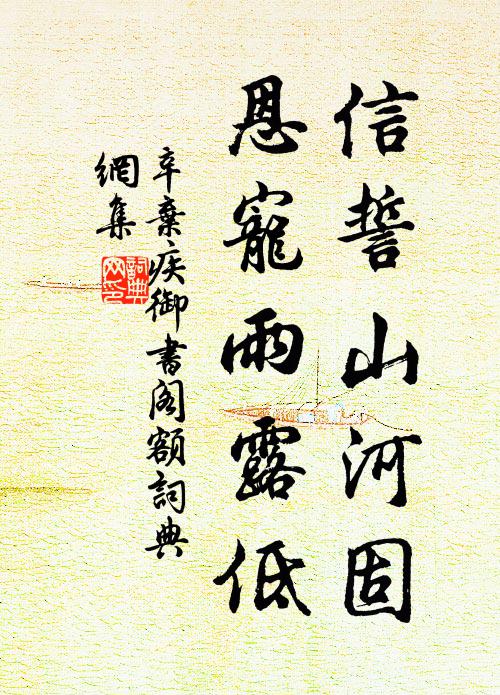 信誓山河固
恩寵雨露低
辛棄疾御書閣額詞典
網集
詞典網印